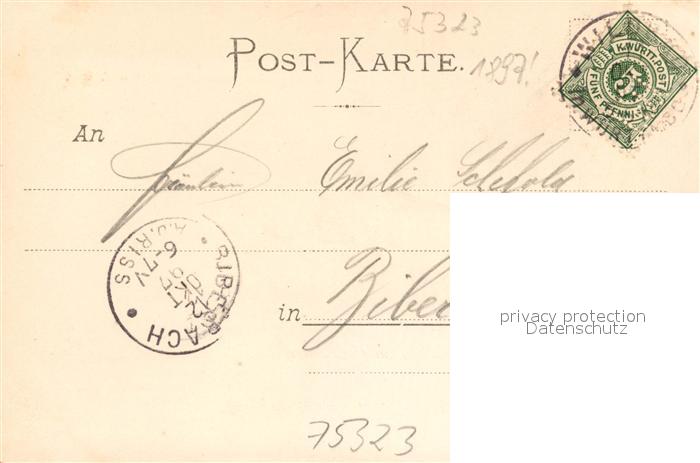 75323
POST-KARTE.
1897!
K.WÜRTT.POST
FÜNF PFENNIG
5
An
Fräulein Emilie Schefold
BIBERACH
A.D.RISS
6-7V
in Biber
privacy protection
Datenschutz
75323